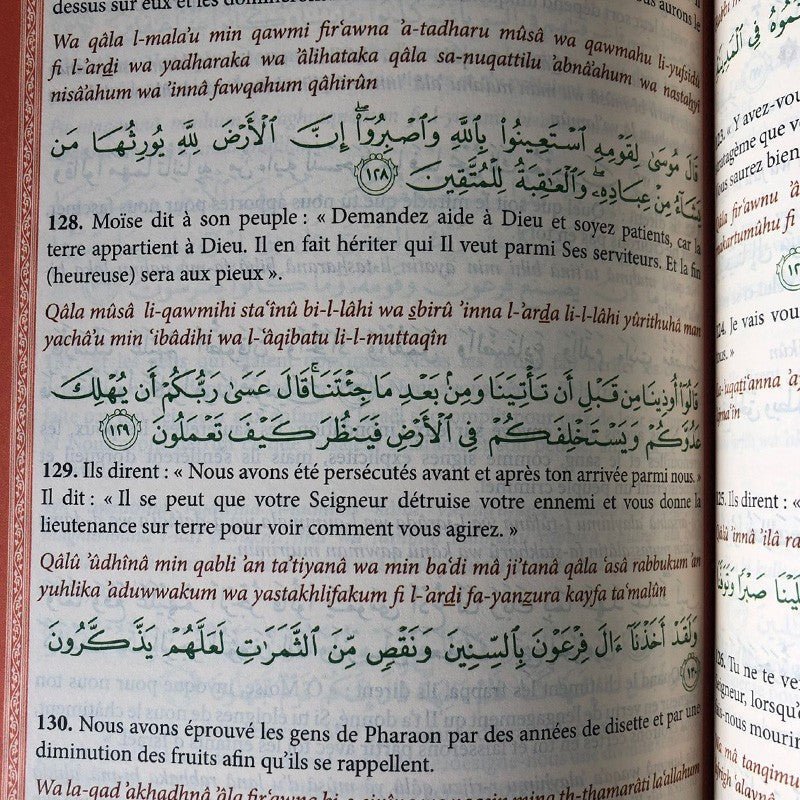 dessus sur eux et les
Wa qâla l-mala'u min qawmi fir‘awna ’a-tadharu mûsâ wa qawmahu li-yufsidû
fi l-’arḍi wa yadharaka wa ’âlihataka qâla sa-nuqattilu ’abnâ’ahum wa nastaḥyî
nisâ’ahum wa ’innâ fawqahum qâhirûn
قَالَ مُوسَىٰ لِقَوْمِهِ ٱسْتَعِينُوا۟ بِٱللَّهِ وَٱصْبِرُوٓا۟ۖ إِنَّ ٱلْأَرْضَ لِلَّهِ يُورِثُهَا مَن
يَشَآءُ مِنْ عِبَادِهِۦۖ وَٱلْعَـٰقِبَةُ لِلْمُتَّقِينَ ١٢٨
128. Moïse dit à son peuple : « Demandez aide à Dieu et soyez patients, car la
terre appartient à Dieu. Il en fait hériter qui Il veut parmi Ses serviteurs. Et la fin
(heureuse) sera aux pieux ».
Qâla mûsâ li-qawmihi sta‘înû bi-l-lâhi wa ṣbirû ’inna l-’arḍa li-l-lâhi yûrithuhâ man
yachâ’u min ‘ibâdihi wa l-‘âqibatu li-l-muttaqîn
قَالُوٓا۟ أُوذِينَا مِن قَبْلِ أَن تَأْتِيَنَا وَمِنۢ بَعْدِ مَا جِئْتَنَاۚ قَالَ عَسَىٰ رَبُّكُمْ أَن يُهْلِكَ
عَدُوَّكُمْ وَيَسْتَخْلِفَكُمْ فِى ٱلْأَرْضِ فَيَنظُرَ كَيْفَ تَعْمَلُونَ ١٢٩
129. Ils dirent : « Nous avons été persécutés avant et après ton arrivée parmi nous. »
Il dit : « Il se peut que votre Seigneur détruise votre ennemi et vous donne la
lieutenance sur terre pour voir comment vous agirez. »
Qâlû ’ûdhînâ min qabli ’an ta’tiyanâ wa min ba‘di mâ ji’tanâ qâla ‘asâ rabbukum ’an
yuhlika ‘aduwwakum wa yastakhlifakum fi l-’arḍi fa-yanẓura kayfa ta‘malûn
وَلَقَدْ أَخَذْنَآ ءَالَ فِرْعَوْنَ بِٱلسِّنِينَ وَنَقْصٍ مِّنَ ٱلثَّمَرَٰتِ لَعَلَّهُمْ يَذَّكَّرُونَ
١٣٠
130. Nous avons éprouvé les gens de Pharaon par des années de disette et par une
diminution des fruits afin qu’ils se rappellent.
Wa la-qad ’akhadhnâ ’âla fir‘awna bi-s-sinîna wa naqṣin mina th-thamarâti la‘allahum
« Y avez-vou
ratagème que v
ous saurez bien
Qâla fir‘awnu
Je vais vou
Ils dirent : «
Qâlû ’innâ ’ilâ ra
Tu ne te ve
Seigneur, lorsqu’
mourir